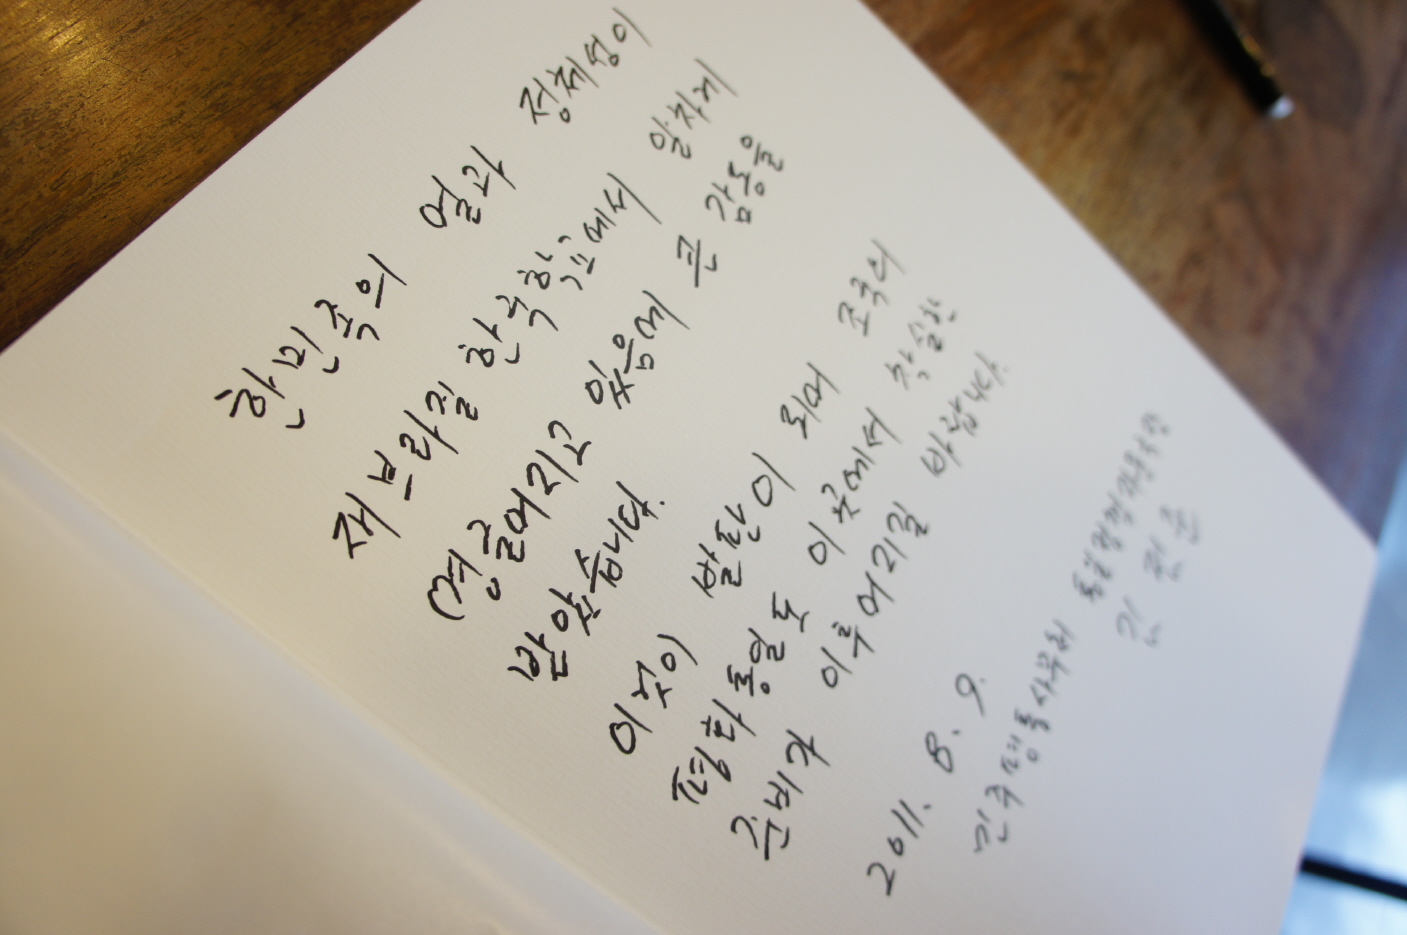 한민족의 얼과 정체성이
재브라질 한국학교에서 알차게
영글어가고 있음에 큰 감동을
받았습니다.
이것이 발판이 되어 조국의
평화통일도 이곳에서 착실한
준비가 이루어지길 바랍니다.
2011. 8. 9.
민주평통사무처 통일정책자문국장